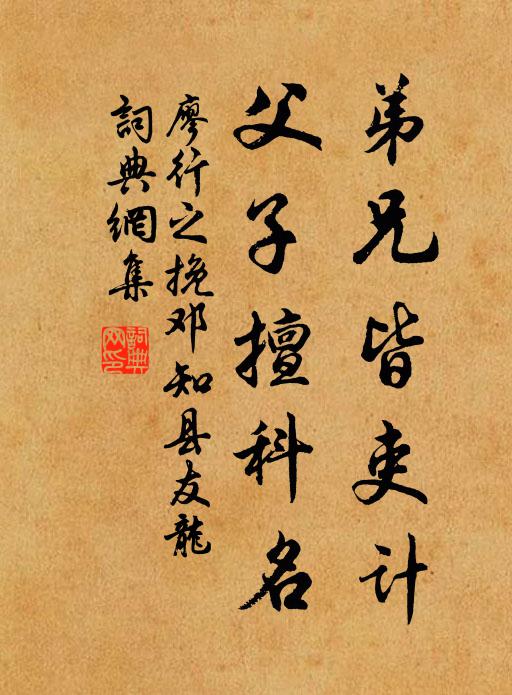 弟兄皆吏计
父子擅科名
廖行之挽邓知县友龍
詞典網集
詞典
网印